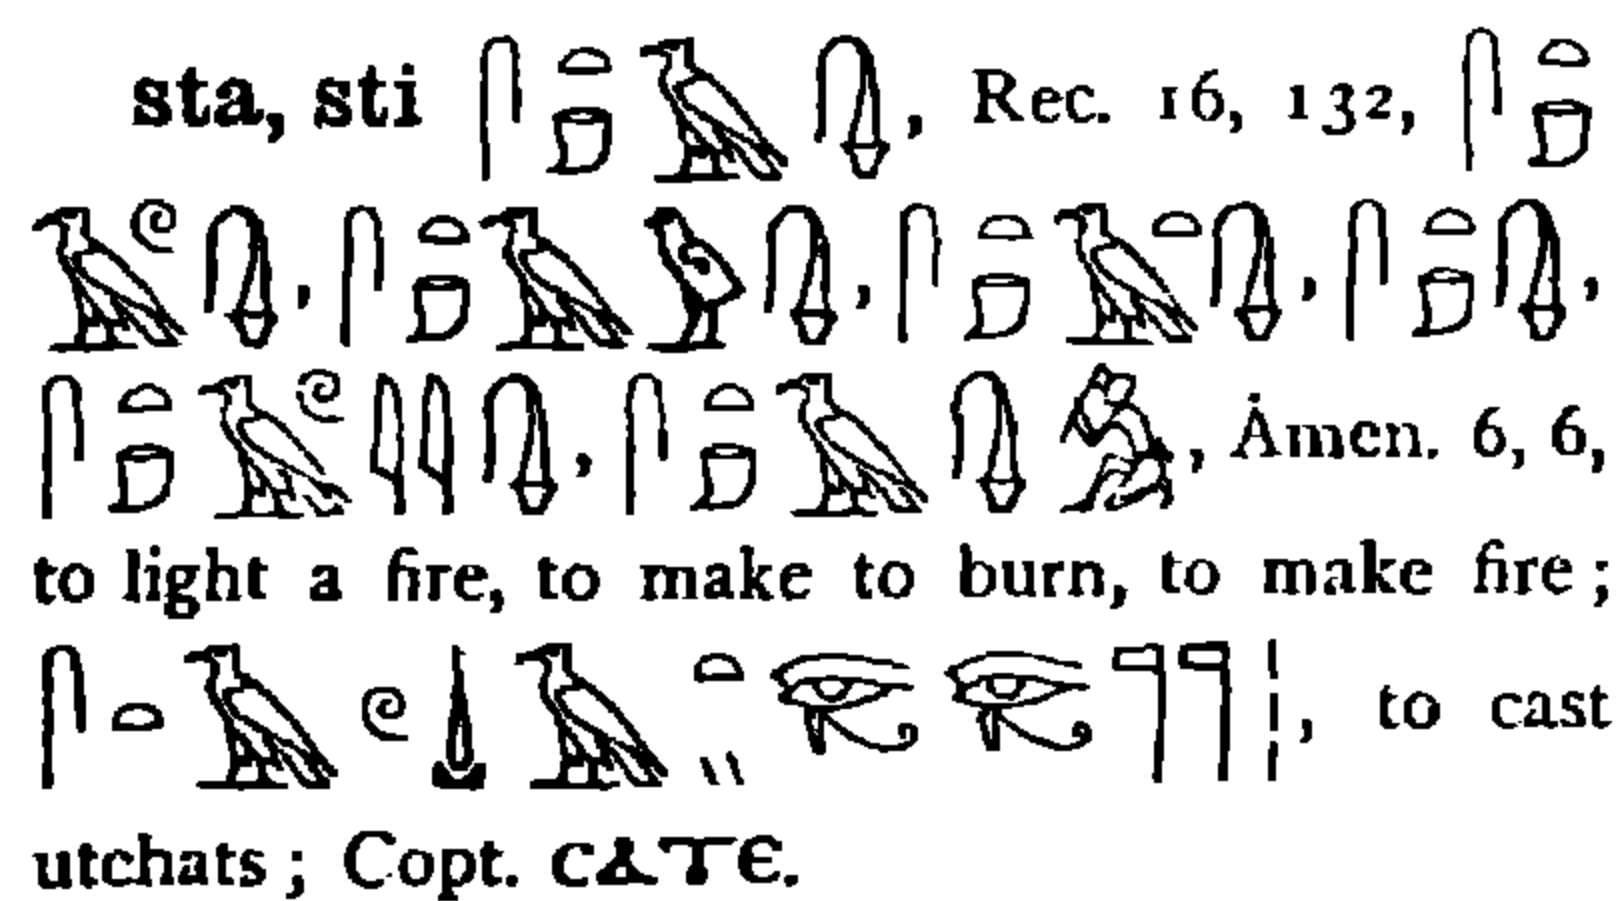 sta, sti 𓋴𓏏𓍔𓄿𓊮, Rec. 16, 132, 𓋴𓏏𓍔
𓄿𓏲𓊮, 𓋴𓏏𓍔𓄿𓅱𓊮, 𓋴𓏏𓍔𓄿𓏏𓊮, 𓋴𓏏𓍔𓊮,
𓋴𓏏𓍔𓄿𓏲𓇋𓇋𓊮, 𓋴𓏏𓍔𓄿𓊮, Ȧmen. 6, 6,
to light a fire, to make to burn, to make fire;
𓋴𓏏𓄿𓏲𓍑𓄿𓏏𓏭𓂀𓂀𓊹𓊹𓏪, to cast
utchats; Copt. ⲤⲀⲦⲈ.